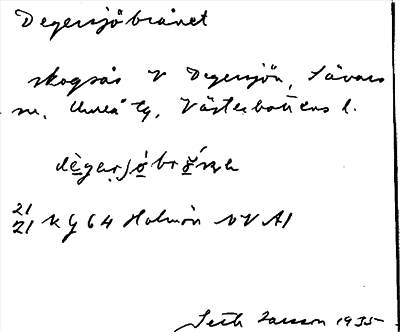 Degersjöbrånet
skogsås V Degersjön, Sävars
sn. Umeå tg, Västerbottens l.
21
21 K G 64 Holmön NV A1
Seth Larsson 1935